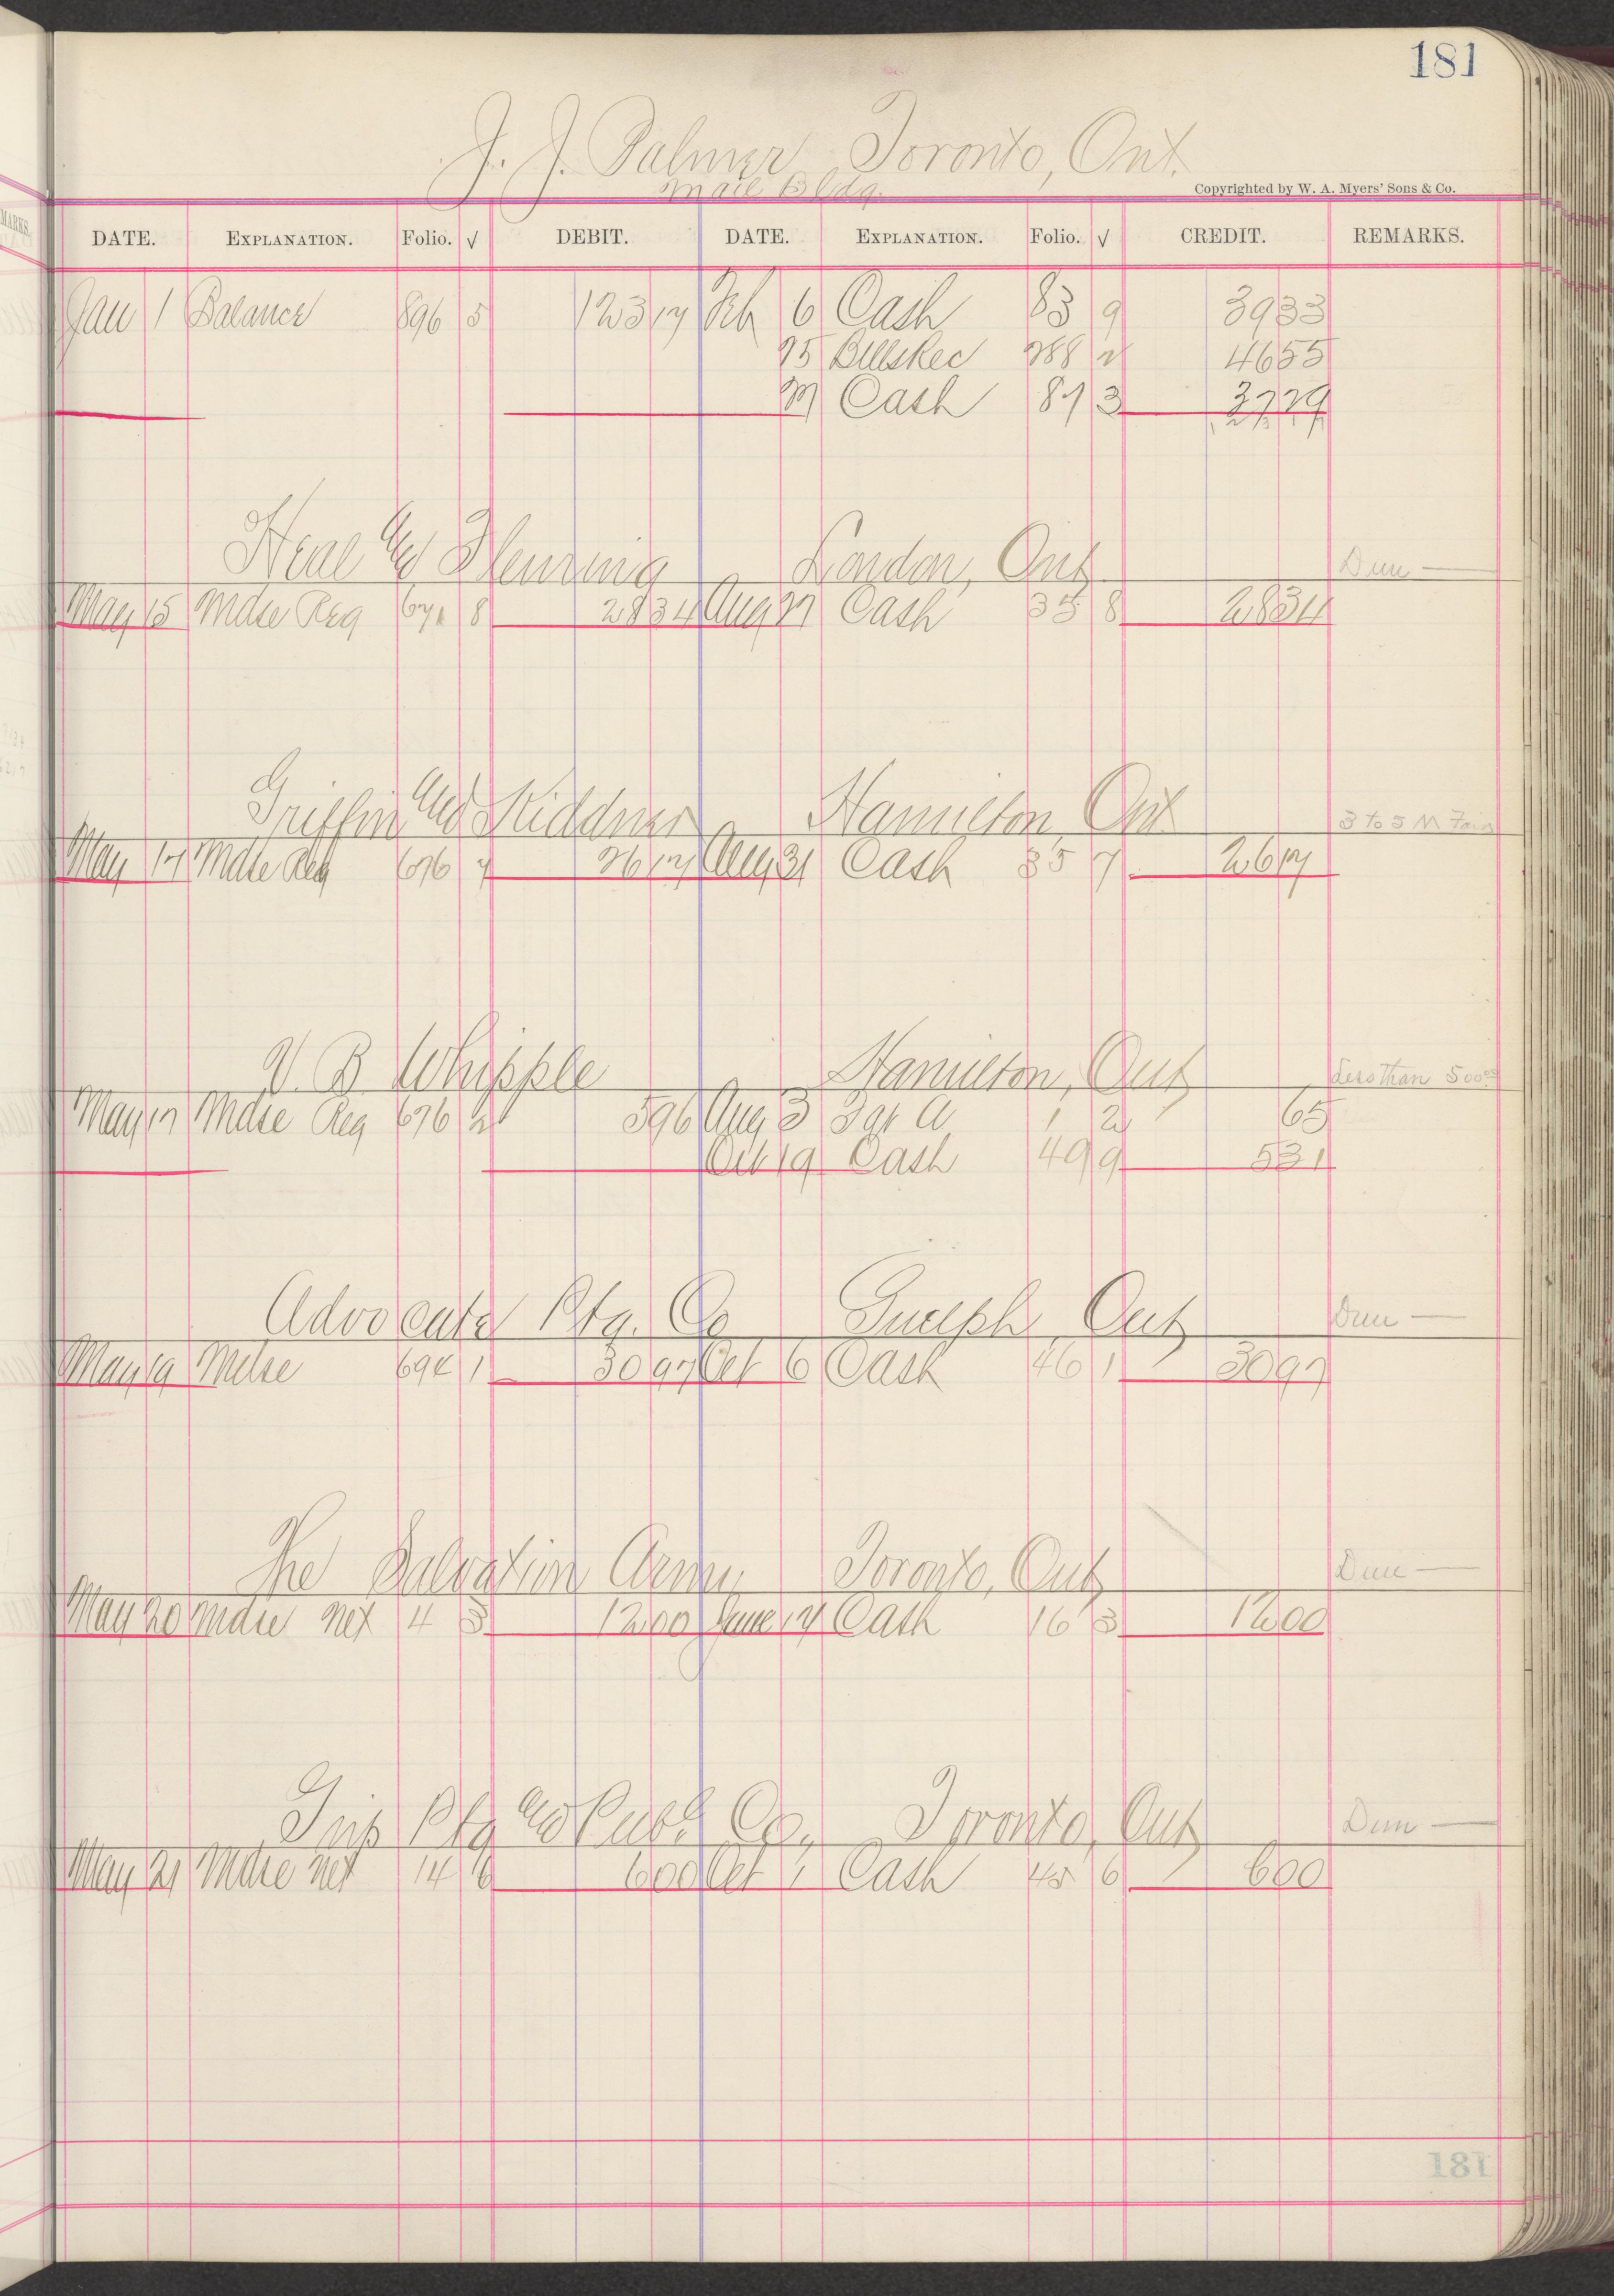 181
J. J. Palmer Toronto, Ont.
Mail Bldg.
Copyrighted by W. A. Myers' Sons & Co.
DATE. EXPLANATION. Folio. √ DEBIT. DATE. EXPLANATION. Folio. √ CREDIT. REMARKS.
Jan 1 Balance 896 5 123 17 Feb 6 Cash 83 9 39 33
25 Bills Rec 288 2 46 55
27 Cash 87 3 37 29
123 17
Heal and Fleming London, Ont Dun —
May 15 Mdse Reg 671 8 28 34 Aug 27 Cash 35 8 28 34
Griffin and Kiddner Hamilton Ont 3 to 5 M Fair
May 17 Mdse Reg 676 7 26 17 Aug 31 Cash 35 7 26 17
V. B Whipple Hamilton, Ont Less than 500.00
May 17 Mdse Reg 676 2 5 96 Aug 3 1 2 65
Oct 19 Cash 49 9 5 31
Advocate Ptg. Co Guelph Ont Dun —
May 19 Mdse 694 1 30 97 Oct 6 Cash 46 1 30 97
The Salvation Army Toronto, Ont Dun —
May 20 Mdse Net 4 3 12 00 June 17 Cash 16 3 12 00
Imp Ptg and Publ Co., Toronto, Ont Dun —
May 21 Mdse Net 14 6 6 00 Oct 1 Cash 45 6 6 00
181